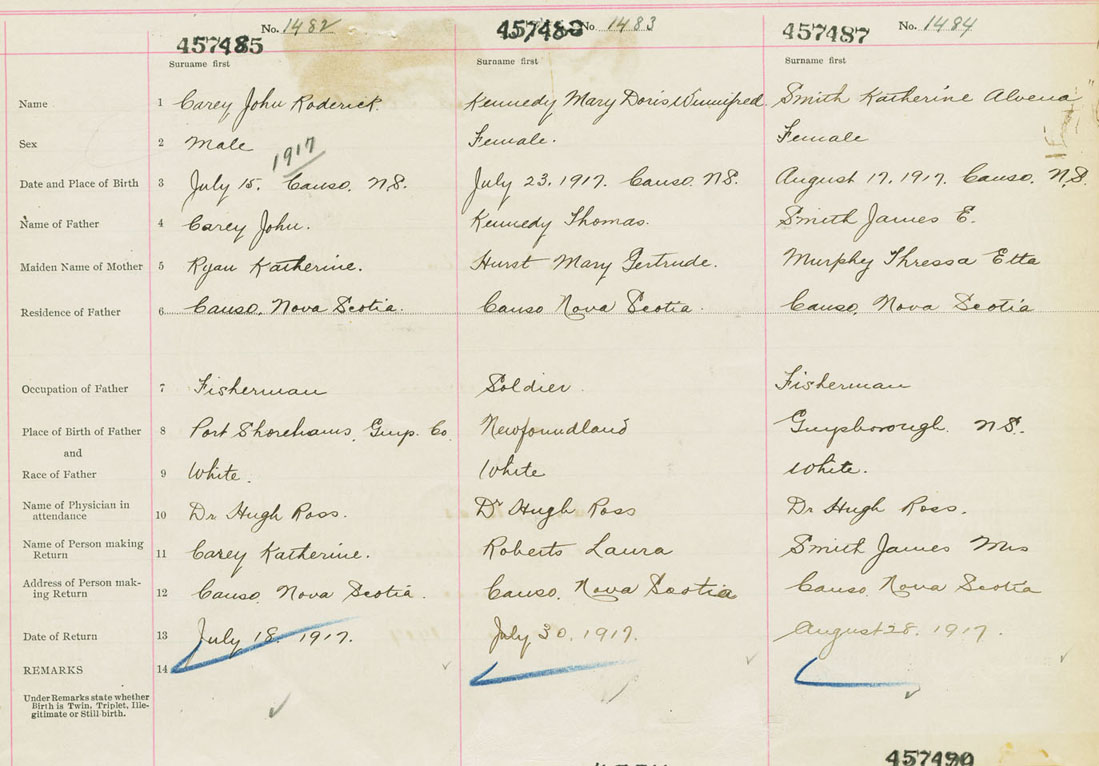 No. 1482 No 1483 No. 1484
457485 457487
Surname first Surname first Surname first
Name 1 Carey John Roderick Kennedy Mary Doris Winnifred Smith Katherine Alvena
Sex 2 Male Female. Female
1917
Date and Place of Birth 3 July 15. Canso. N.S. July 23, 1917. Canso. N.S. August 17, 1917. Canso. N.S.
Name of Father 4 Carey John. Kennedy Thomas. Smith James E.
Maiden Name of Mother 5 Ryan Katherine. Hurst Mary Gertrude. Murphy Thressa Etta
Residence of Father 6 Canso, Nova Scotia. Canso Nova Scotia. Canso, Nova Scotia
Occupation of Father 7 Fisherman Soldier Fisherman
Place of Birth of Father 8 Port Shoreham, Guys. Co. Newfoundland Guysborough. N.S.
and
Race of Father 9 White. White White.
Name of Physician in
attendance 10 Dr Hugh Ross. Dr Hugh Ross Dr Hugh Ross.
Name of Person making
Return 11 Carey Katherine. Roberts Laura Smith James Mrs
Address of Person mak-
ing Return 12 Canso, Nova Scotia. Canso, Nova Scotia Canso, Nova Scotia
Date of Return 13 July 18. 1917. July 30, 1917. August 28, 1917.
REMARKS 14
Under Remarks state whether
Birth is Twin, Triplet, Ille-
gitimate or Still-birth.
457490